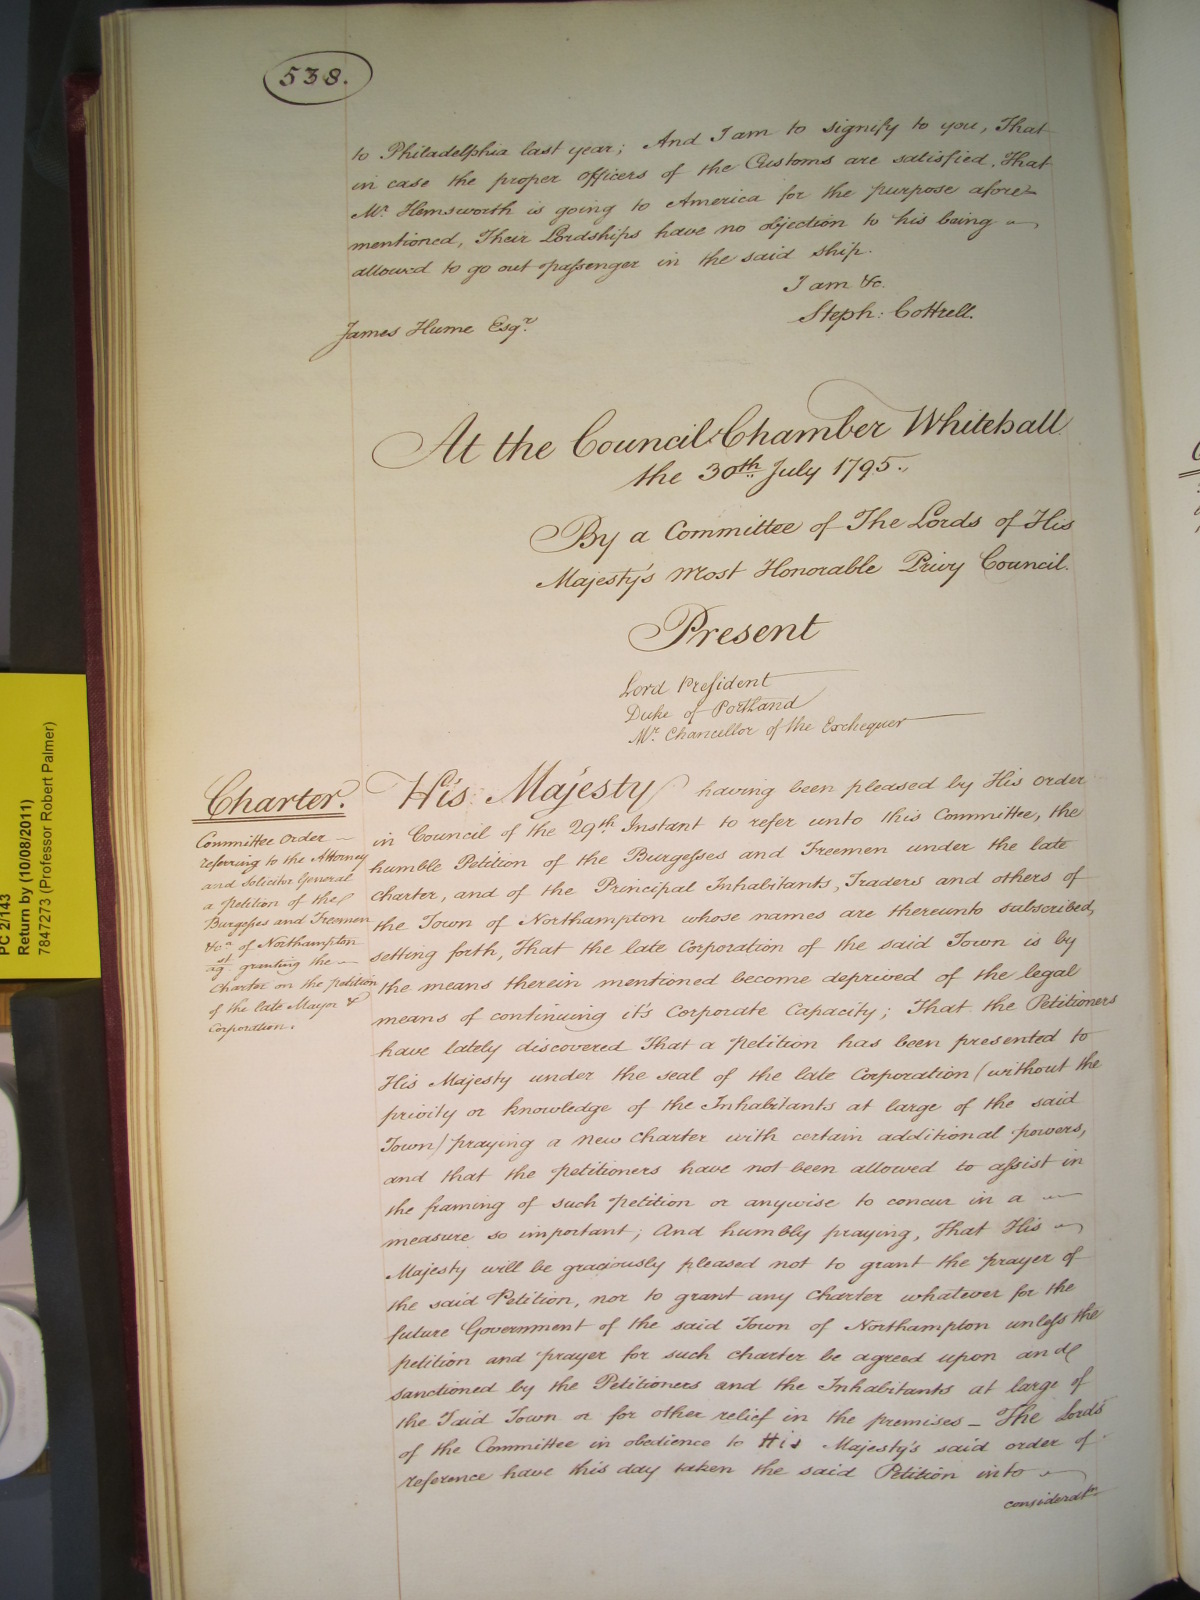 538.
to Philadelphia last year; And I am to signify to you, That
in case the proper officers of the Customs are satisfied, That
Mr. Hemsworth is going to America for the purpose afore
mentioned, Their Lordships have no objection to his being
allowed to go out passenger in the said ship.
I am &c.
Steph: Cottrell.
James Hume Esqr.
At the Council Chamber Whitehall
the 30th July 1795.
By a Committee of The Lords of His
Majesty's Most Honorable Privy Council.
Present
Lord President
Duke of Portland
Mr. Chancellor of the Exchequer
Charter.
Committee Order
referring to the Attorney
and Solicitor General
a Petition of the
Burgesses and Freemen
&ca of Northampton
agst granting the
Charter on the petition
of the late Mayor &
Corporation.
His Majesty having been pleased by His Order
in Council of the 29th Instant to refer unto this Committee, the
humble Petition of the Burgesses and Freemen under the late
Charter, and of the Principal Inhabitants, Traders and others of
the Town of Northampton whose names are thereunto subscribed,
setting forth, That the late Corporation of the said Town is by
the means therein mentioned become deprived of the legal
means of continuing it's Corporate Capacity; That the Petitioners
have lately discovered That a petition has been presented to
His Majesty under the seal of the late Corporation (without the
privity or knowledge of the Inhabitants at large of the said
Town) praying a New Charter with certain additional powers,
and that the petitioners have not been allowed to assist in
the framing of such petition or anywise to concur in a
measure so important; And humbly praying, That His
Majesty will be graciously pleased not to grant the prayer of
the said Petition, nor to grant any Charter whatever for the
future Government of the said Town of Northampton unless the
petition and prayer for such charter be agreed upon and
sanctioned by the Petitioners and the Inhabitants at large of
the Said Town or for other relief in the premises — The Lords
of the Committee in obedience to His Majesty's said order of
reference have this day taken the said Petition into
considerat:n
PC 2/143
Return by (10/08/2011)
7847273 (Professor Robert Palmer)